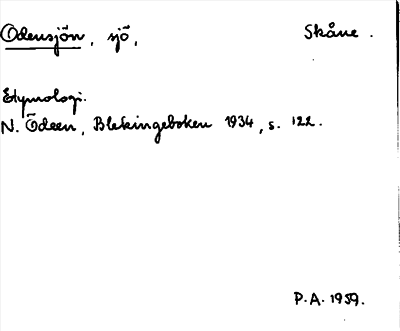 Odensjön, sjö, Skåne.
Etymologi.
N. Ödeen, Blekingeboken 1934, s. 122.
P.A. 1959.